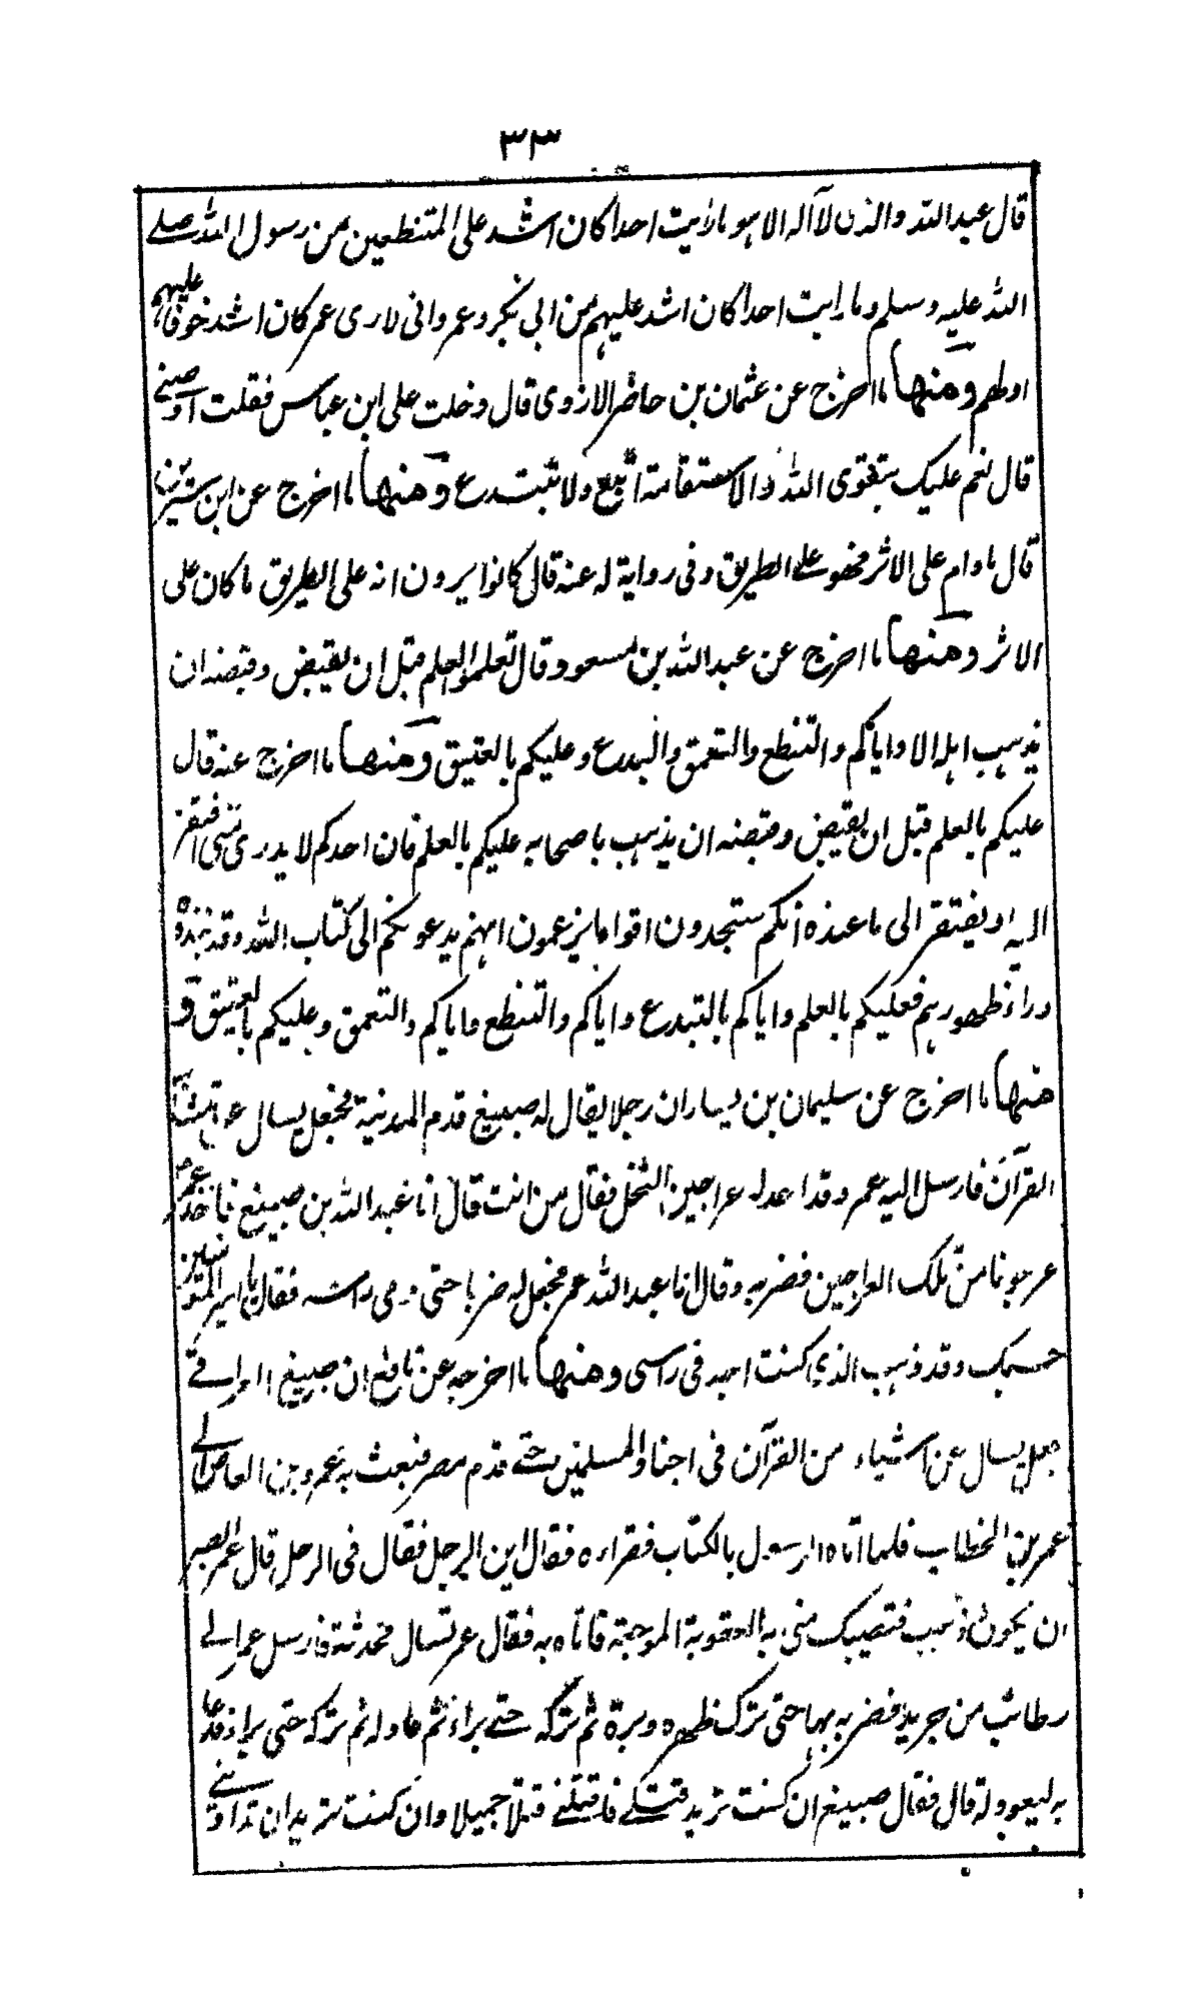 ٣٣
قال عبد الله والذی لا آله الا هو ما رایت احدا کان اشد علی المتنطعین من رسول الله صلے
الله علیه وسلم وما رایت احدا کان اشد علیهم من ابی بکر وعمر وانی لاری عمر کان اشد خوفا علیهم
اولهم ومنها ما اخرج عن عثمان بن حاضر الازدی قال دخلت علی ابن عباس فقلت اوصنے
قال نعم علیک بتقوی الله والاستقامة اتبع ولا تبتدع ومنها ما اخرج عن ابن سیرین
قال ما دام علی الاثر فهو علے الطریق وفی روایة له عنه قال کانوا یرون انه علی الطریق ما کان علی
الاثر ومنها ما اخرج عن عبد الله بن مسعود قال تعلموا العلم قبل ان یقبض وقبضه ان
یذهب اهله الا وایاکم والتنطع والتعمق والبدع وعلیکم بالعتیق ومنها ما اخرج عنه قال
علیکم بالعلم قبل ان یقبض وقبضه ان یذهب باصحابه علیکم بالعلم فان احدکم لا یدری متی افتقر
الیه او یفتقر الی ما عنده انکم ستجدون اقواما یزعمون انهم یدعونکم الی کتاب الله وقد نبذوه
وراء ظهورهم فعلیکم بالعلم وایاکم بالتبدع وایاکم والتنطع وایاکم والتعمق وعلیکم بالعتیق و
منها ما اخرج عن سلیمان بن یسار ان رجلا یقال له صبیغ قدم المدینة فجعل یسال عن متشابه
القرآن فارسل الیه عمر وقد اعد له عراجین النخل فقال من انت قال انا عبد الله بن صبیغ فاخذ عمر
عرجونا من تلک العراجین فضربه وقال انا عبد الله عمر فجعل له ضربا حتی دمی راسه فقال یا امیر المؤمنین
حسبک وقد ذهب الذی کنت اجد فی راسی ومنها ما اخرجه عن نافع ان صبیغ العراقے
جعل یسال عن اشیاء من القرآن فی اجناد المسلمین حتے قدم مصر فبعث به عمرو بن العاص الے
عمر بن الخطاب فلما اتاه الرسول بالکتاب فقراءه فقال این الرجل فقال فی الرحل قال عمر ابصر
ان یکون ذهب فتصیبک منی به العقوبة الموجعة فاتاه به فقال عمر تسال محدثة فارسل عمر الے
رطائب من جرید فضربه بها حتی ترک ظهره وبرة ثم ترکه حتے براء ثم عاد له ثم ترکه حتی براء فدعا
به لیعود له قال فقال صبیغ ان کنت ترید قتلے فاقتلنے قتلا جمیلا وان کنت ترید ان تداوینے